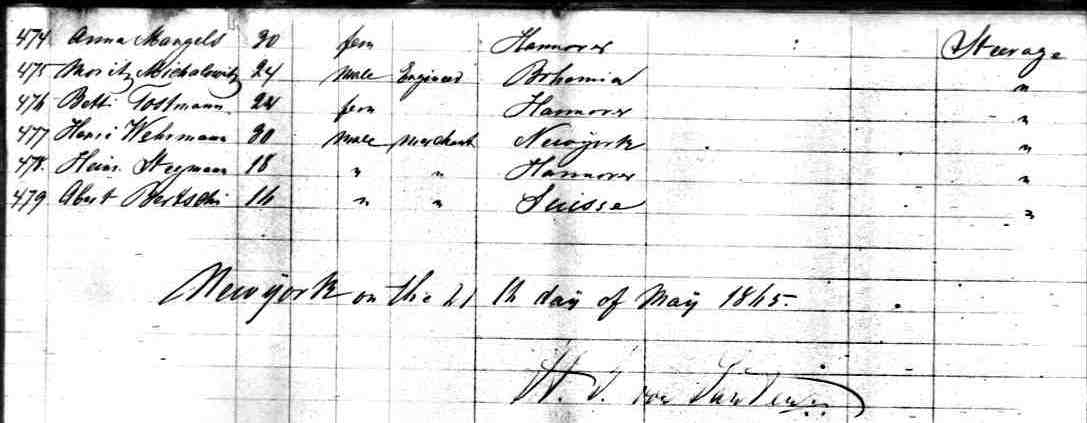 474 Anna Mangels 20 fem Hannover Steerage
475 Moritz Michalowitz 24 Male Engineer Bohemia "
476 Betti Tostmann 24 fem Hannover "
477 Wehrmann 20 Male Merchant Newyork "
478 Heinr. Stegmann 18 " " Hannover "
479 Bertschi 16 " " Suisse "
Newyork on the 21 th day of May 1865.
von